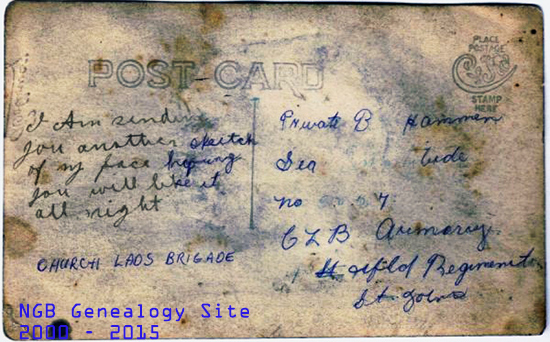 POST CARD
PLACE
POSTAGE
STAMP
HERE
I Am sending
you another sketch
of my face hopung
you will like it
all night
CHURCH LADS BRIGADE
Private B Hammen
No 7
C L B Armoury
Nfld Regiment
St Johns
NGB Genealogy Site
2000 - 2015